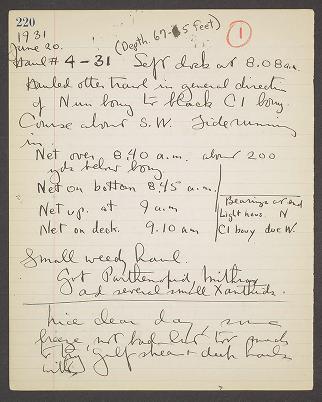 220
1931
June 20.
(Depth. 67-65 feet)
1
Haul # 4-31 Left dock at 8.08 a.m.
Hauled otter trawl in general direction
of Nun bouy to black C1 bouy.
Course about S.W. Tide running
in.
Net over 8.40 a.m. about 200
yds below bouy
Net on bottom 8.45 a.m.
Net up. at 9 a.m
Net on deck. 9.10 am
Bearings at end
Light hous. N
C1 bouy due W.
Small weedy haul.
Got Parthenopid, Mithrax
and several small Xanthids.
Nice clear day, some
breeze, not bad but too much
to try gulf stream + deep hauls
with